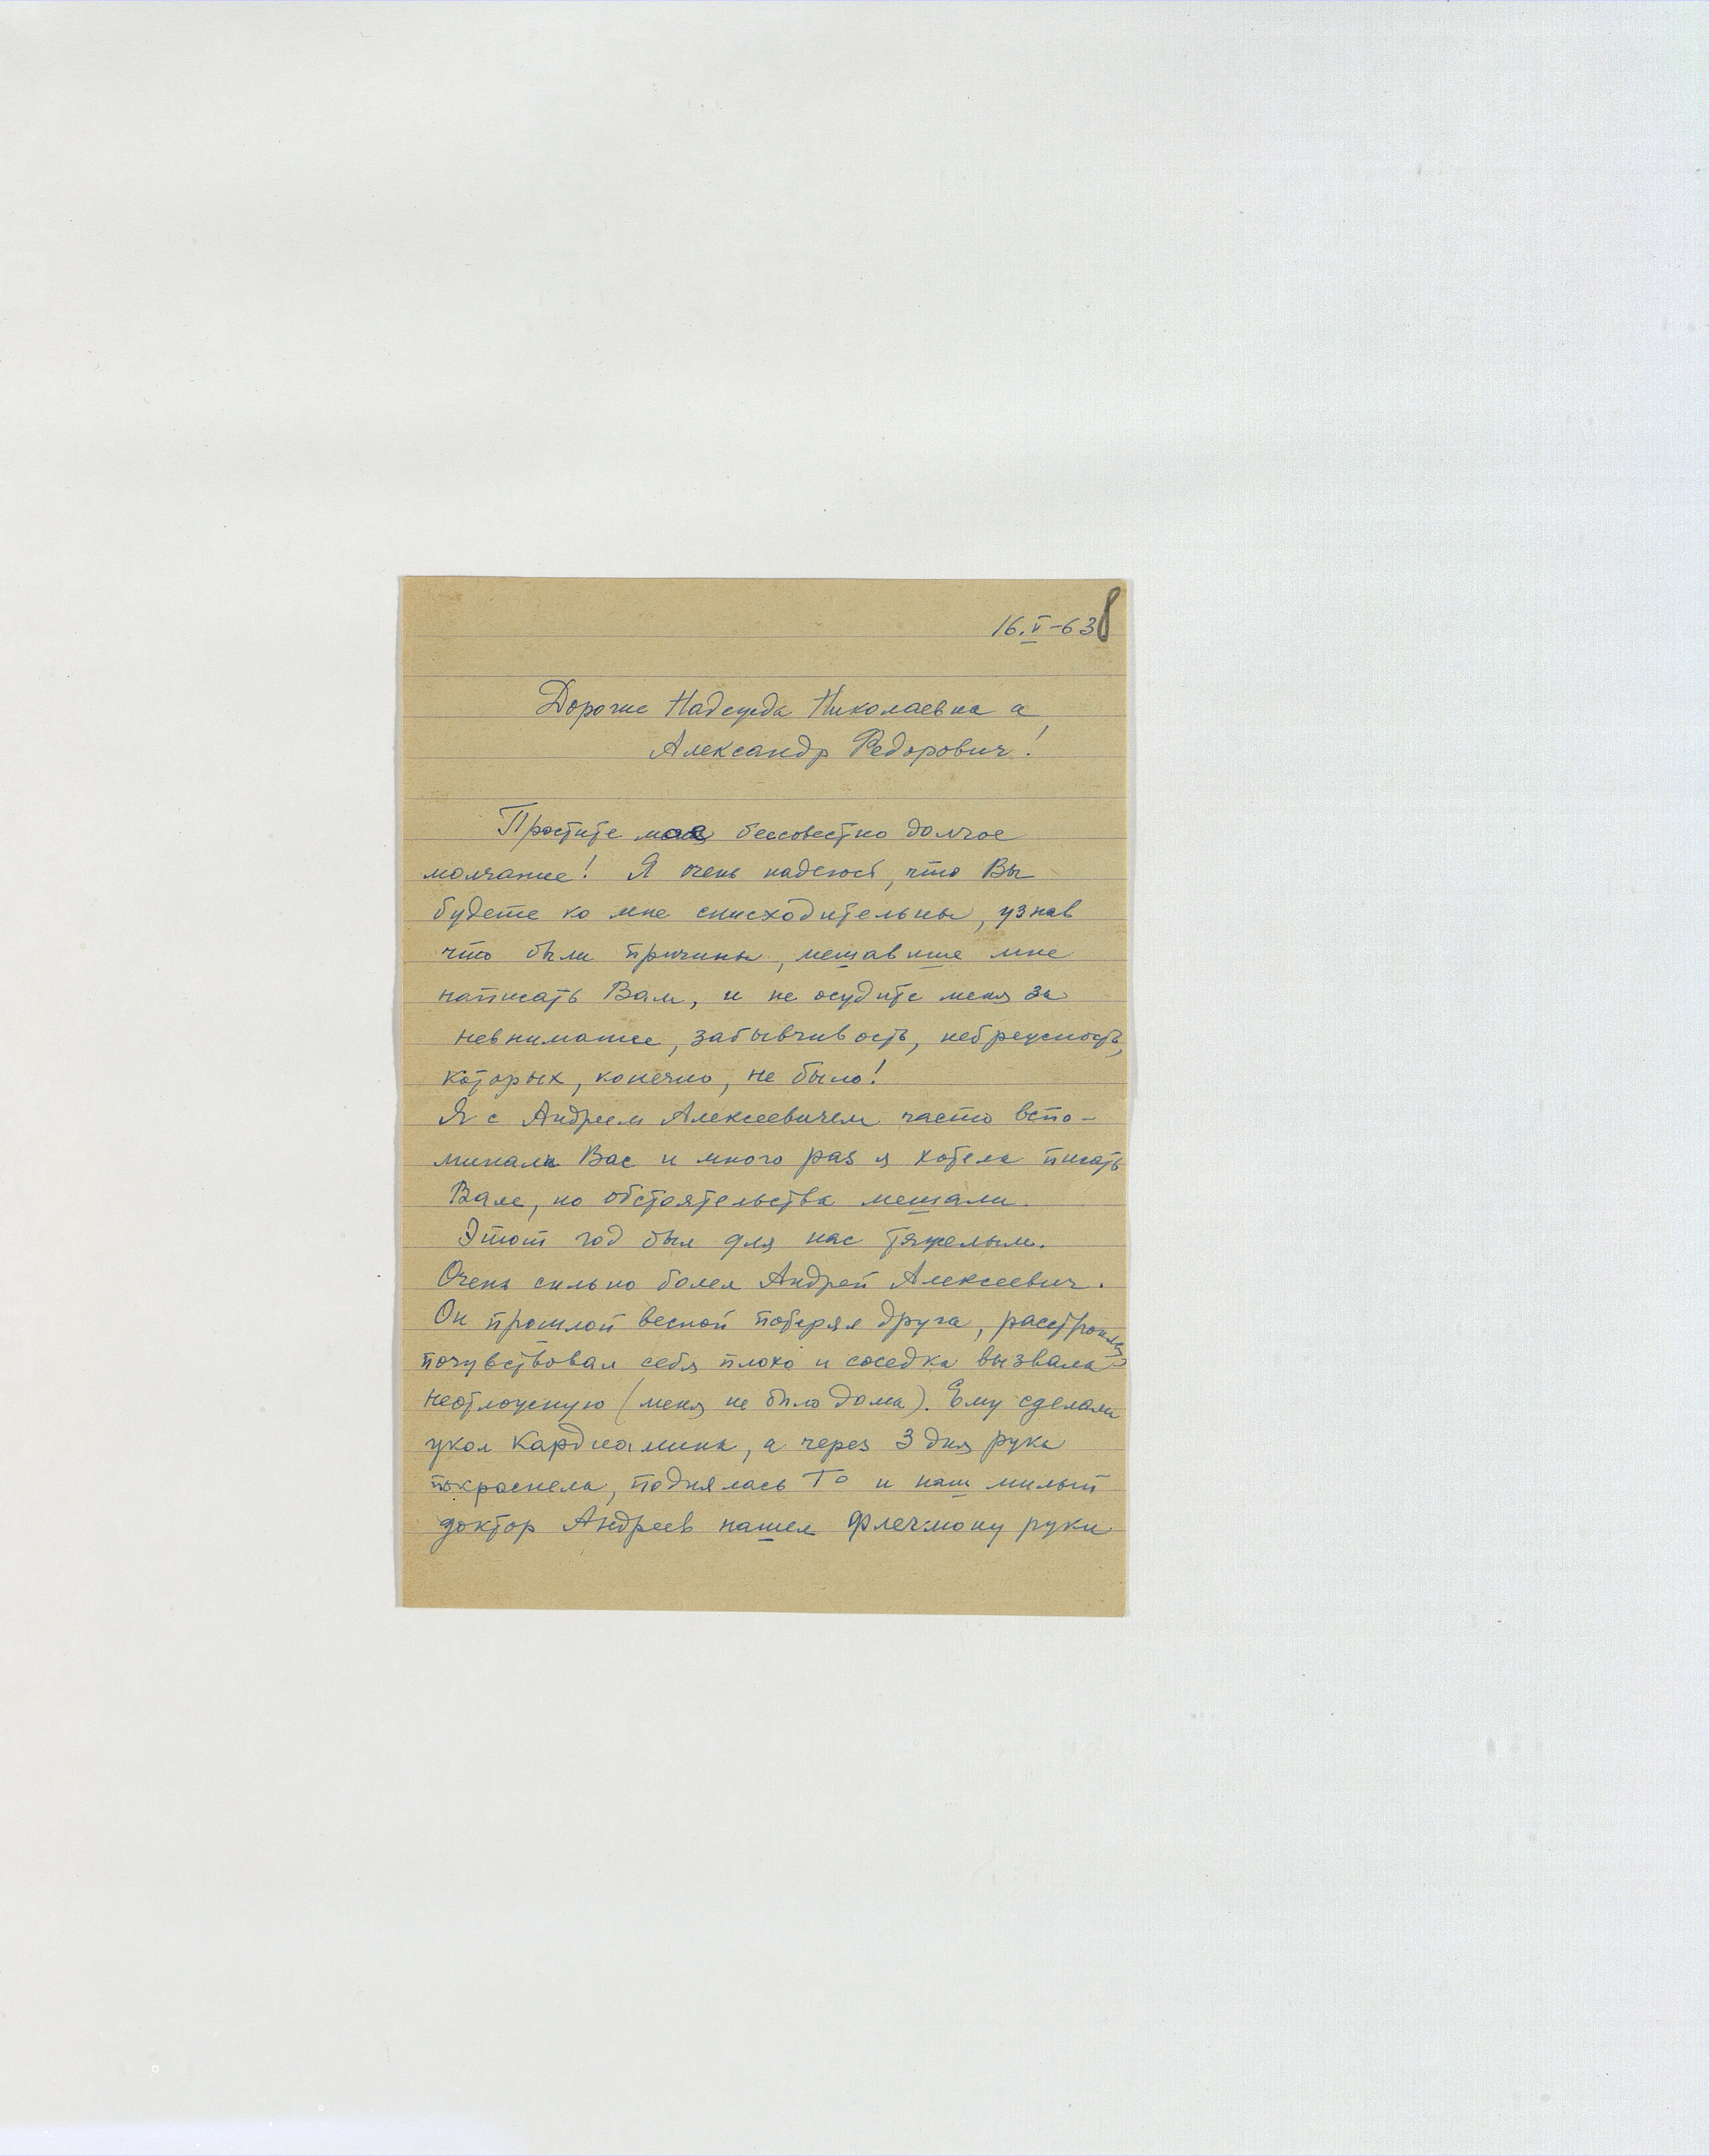 16.V-63
Дорогие Надежда Николаевна и
Александр Федорович!
Простите мое бессовестно долгое
молчание! Я очень надеюсь, что Вы
будете ко мне снисходительны, узнав
что были причины, мешавшие мне
написать Вам, и не осудите меня за
невнимание, забывчивость, небрежность,
которых, конечно, не было!
Я с Андреем Алексеевичем часто вспо-
минали Вас и много раз я хотела писать
Вам, но обстоятельства мешали.
Этот год был для нас тяжелым.
Очень сильно болел Андрей Алексеевич.
Он прошлой весной потерял друга, расстроился
почувствовал себя плохо и соседка вызвала
неотложную (меня не было дома). Ему сделали
укол кардиамина, а через 3 дня рука
покраснела, поднялась Т° и наш милый
доктор Андреев нашел флегмону руки